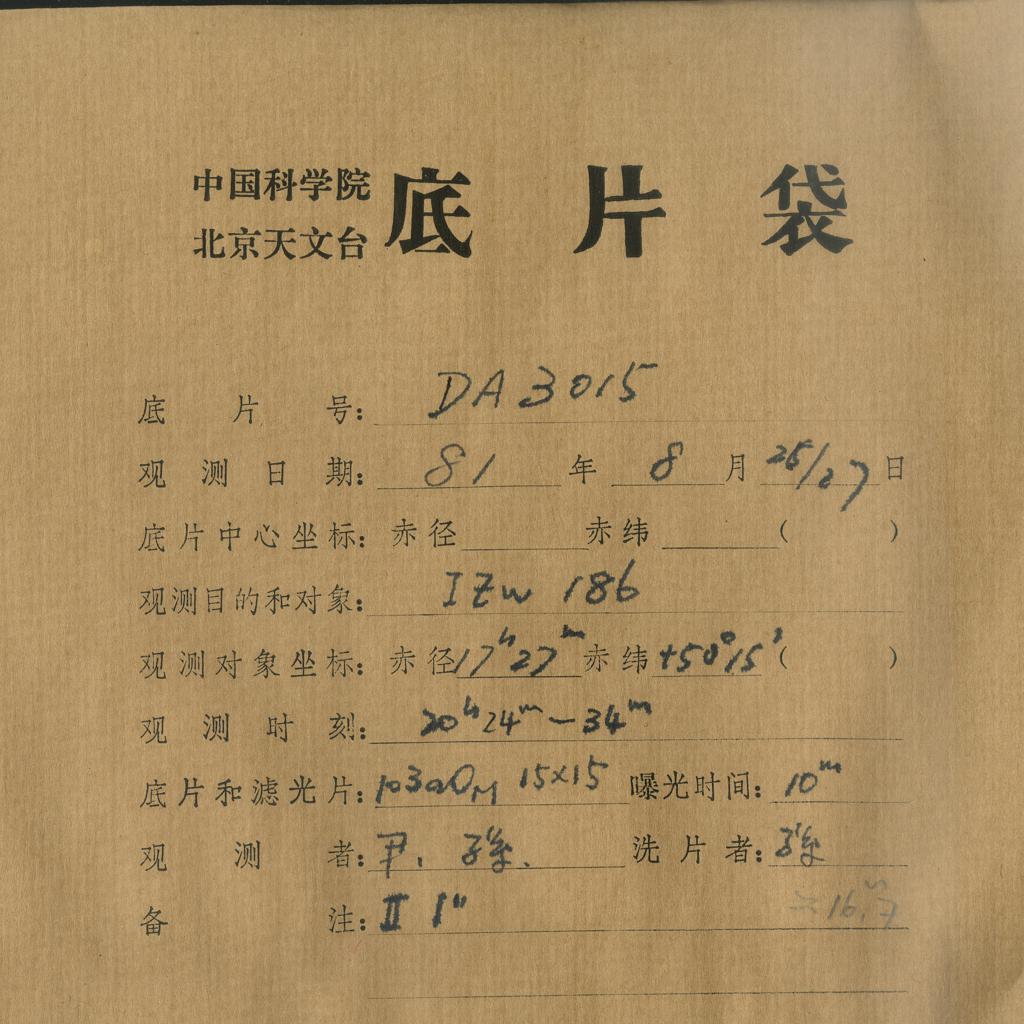 中国科学院
北京天文台
底片袋
底片号: DA3015
观测日期: 81年 8月 26/27日
底片中心坐标: 赤径 赤纬 ( )
观测目的和对象: I Zw 186
观测对象坐标: 赤径 17ʰ27ᵐ 赤纬 +50°15′ ( )
观测时刻: 20ʰ24ᵐ—34ᵐ
底片和滤光片: 103aO 15×15 曝光时间: 10ᵐ
观测者: 尹、孫. 洗片者: 孫
备注: II 1" 16.ᵐ7